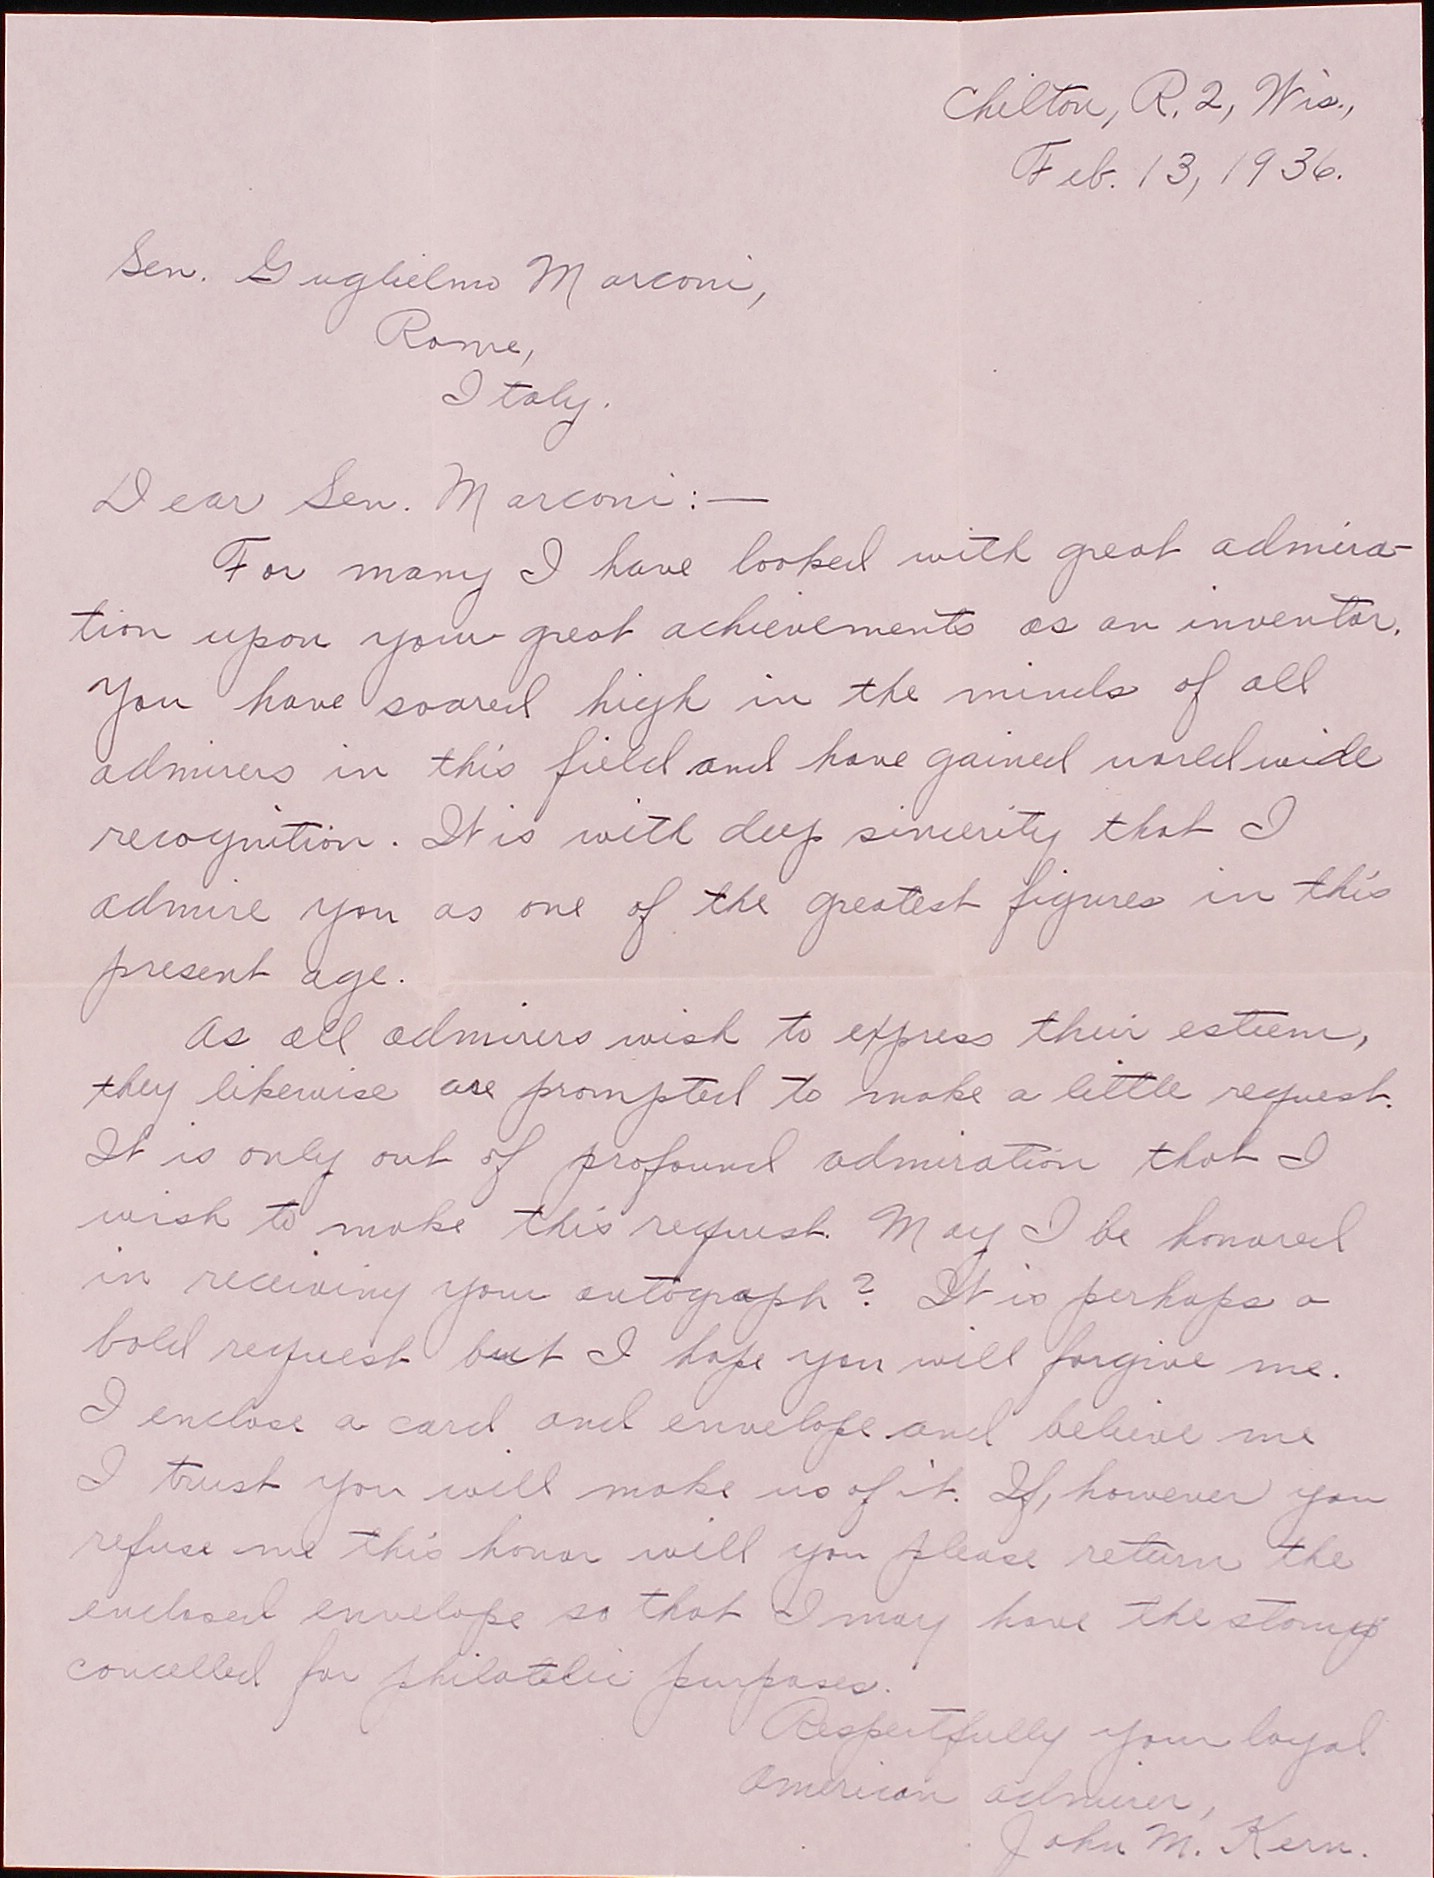 Chilton, R. 2, Wis.,
Feb. 13, 1936.
Sen. Guglielmo Marconi,
Rome,
Italy.
Dear Sen. Marconi:—
For many I have looked with great admira-
tion upon your great achievements as an inventor.
You have soared high in the minds of all
admirers in this field and have gained world wide
recognition. It is with deep sincerity that I
admire you as one of the greatest figures in this
present age.
As all admirers wish to express their esteem,
they likewise are prompted to make a little request.
It is only out of profound admiration that I
wish to make this request. May I be honored
in receiving your autograph? It is perhaps a
bold request but I hope you will forgive me.
I enclose a card and envelope and believe me
I trust you will make us of it. If, however you
refuse me this honor will you please return the
enclosed envelope so that I may have the stamp
cancelled for philatelic purposes.
Respectfully your loyal
American admirer,
John M. Kern.